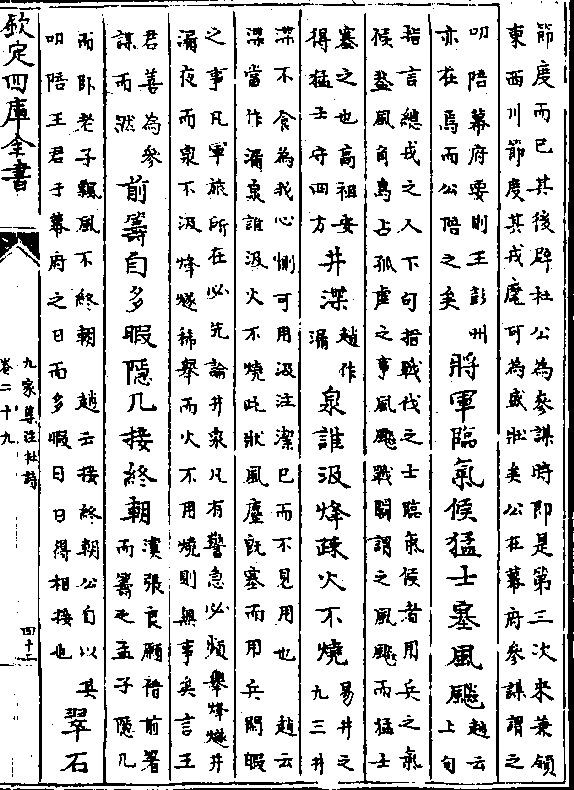 節度而已其後辟杜公為參謀時即是第三次來兼領
東西川節度其戎麾可為盛壯矣公在幕府參謀謂之
叨陪幕府要則王彭州
亦在焉而公陪之矣
將軍臨氣候猛士塞風飈
趙云
上句
指言總戎之人下句指戰伐之士臨氣候者用兵之氣
候蓋風角鳥占孤虛之事風飈戰鬬謂之風飈而猛士
塞之也高祖安
得猛士守四方
井渫
趙作
漏
泉誰汲烽疎火不燒
易井之
九三井
渫不食為我心惻可用汲注潔已而不見用也 趙云
渫當作漏泉誰汲火不燒此狀風塵既塞而用兵閒暇
之事凡軍旅所在必先論井泉凡有警急必頻舉烽燧井
漏夜而泉不汲烽燧稀舉而火不用燒則無事矣言王
君善為參
謀而然
前籌自多暇隱几接終朝
漢張良願借前箸
而籌之孟子隱几
而卧老子飄風不終朝 趙云接終朝公自以其
叨陪王君于幕府之日而多暇日日得相接也
翠石
欽定四庫全書
九家集注杜詩
卷二十九
四十二